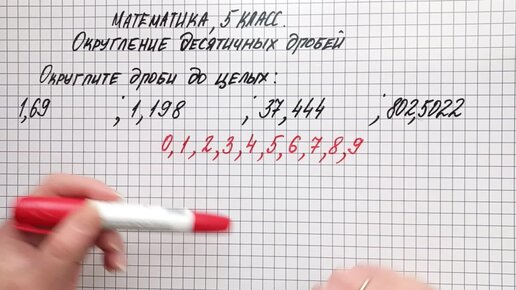 Математика, 5 класс.
Округление десятичных дробей
Округлите дроби до целых:
1,69 ; 1,198 ; 37,444 ; 802,5022
0,1,2,3,4,5,6,7,8,9